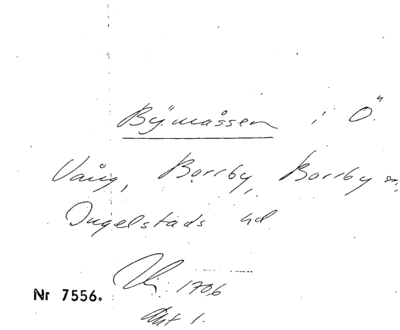 Bymåssen i Ö.
Vång, Borrby, Borrby sn,
Ingelstads hd
1706
Nr 7556.
Akt 1.